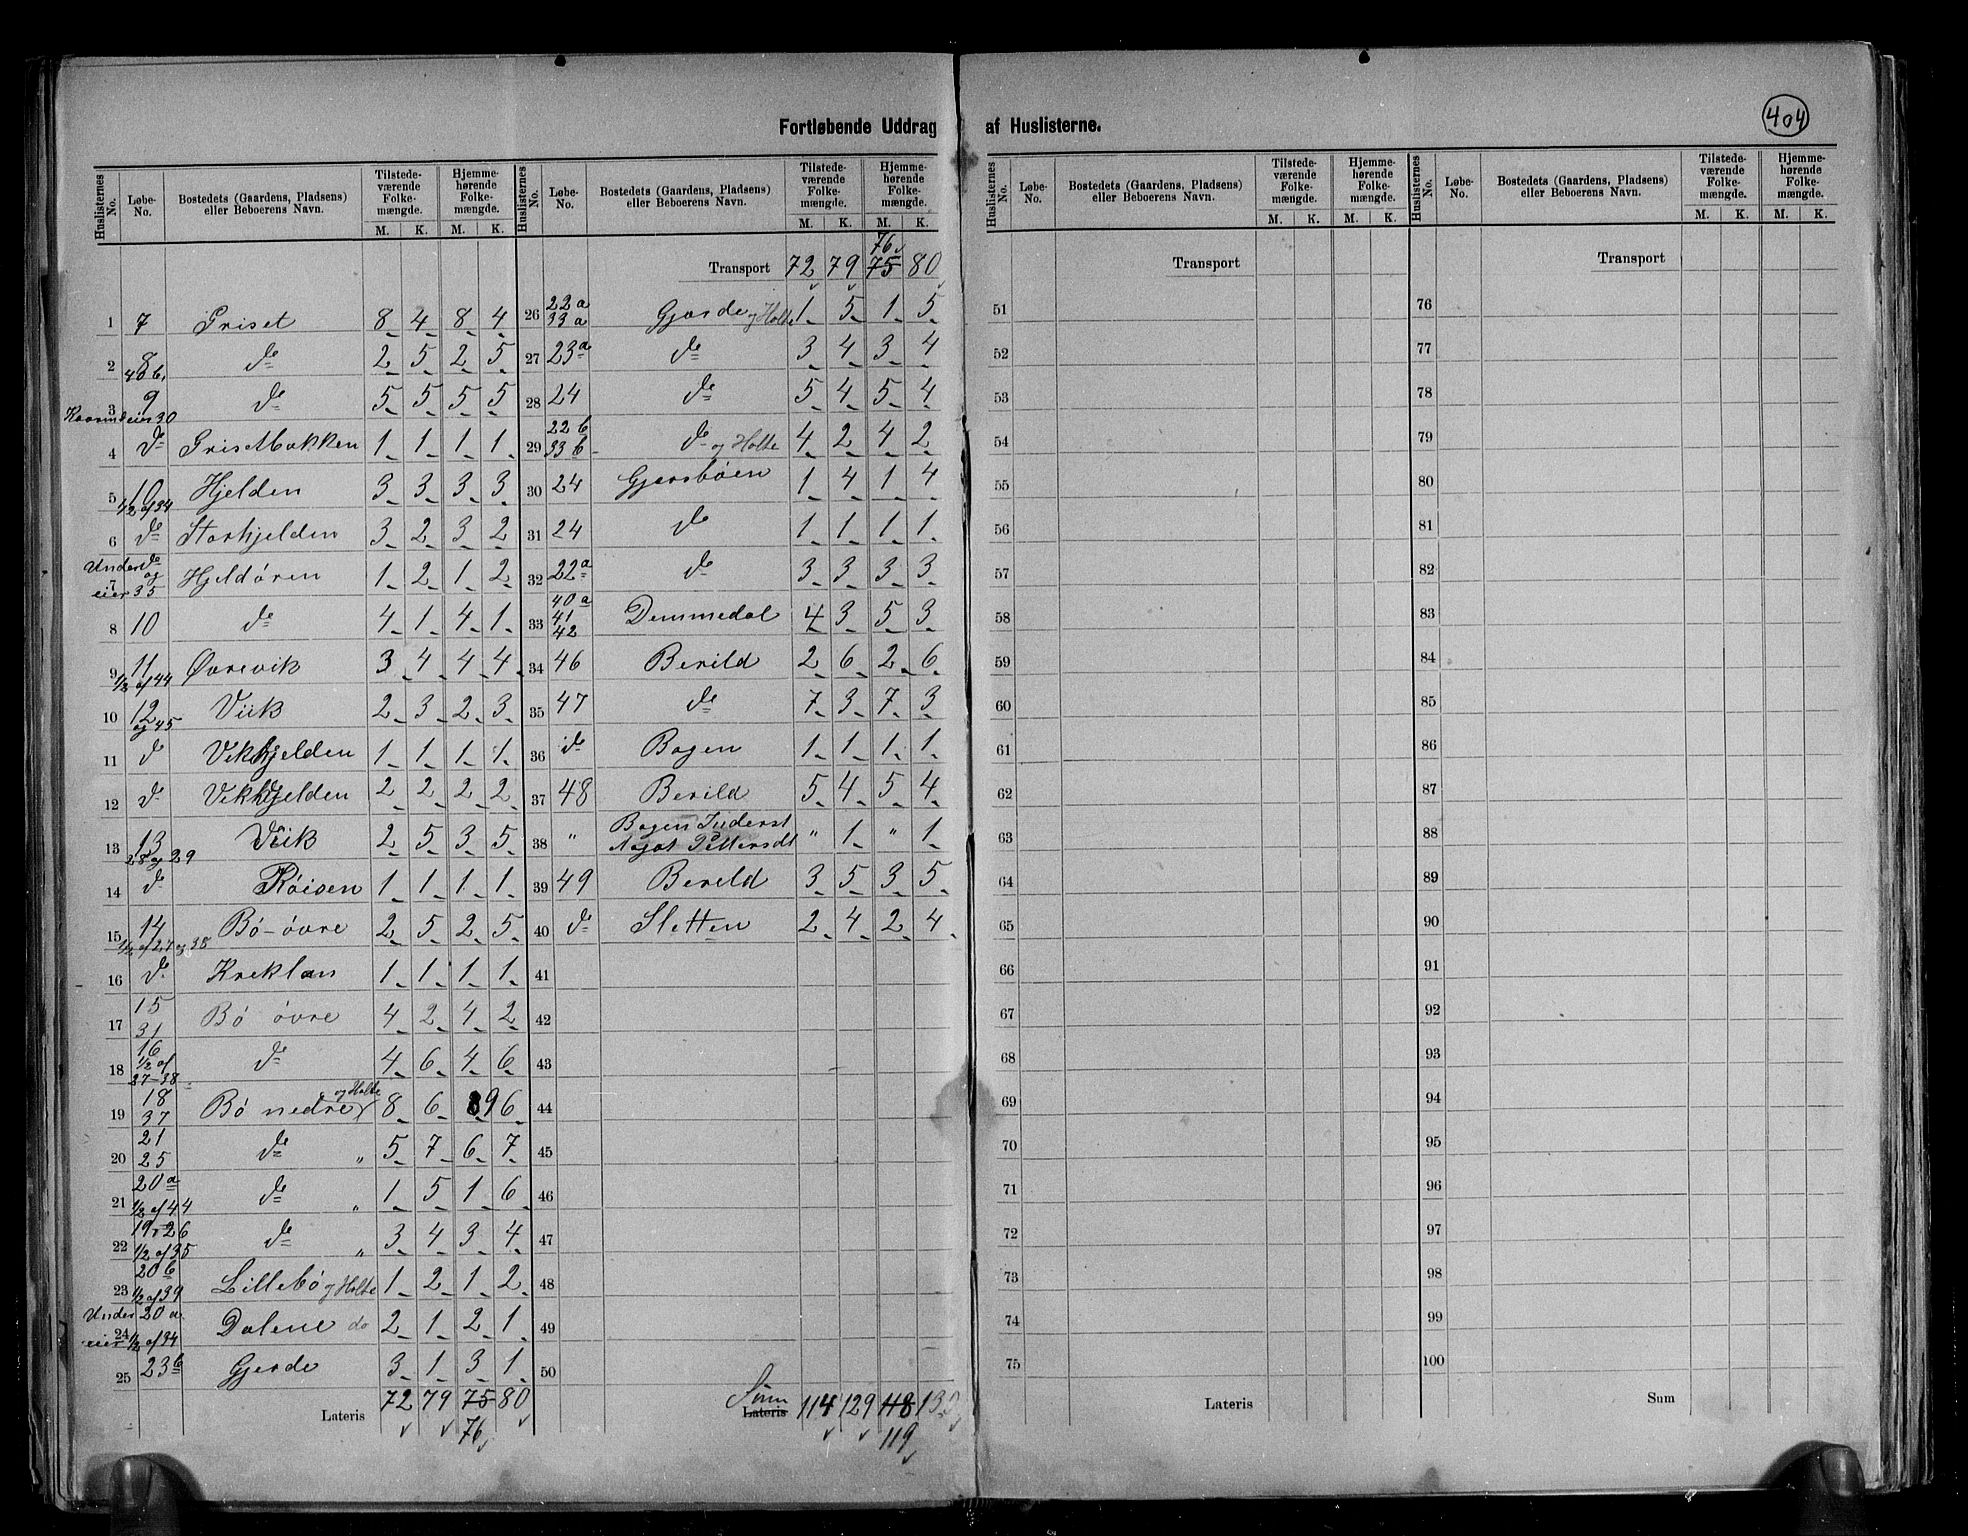 404
Fortløbende Uddrag af Huslisterne.
Huslisternes No. | Løbe-No. | Bostedets (Gaardens, Pladsens) eller Beboerens Navn. | Tilstedeværende Folkemængde. M. K. | Hjemmehørende Folkemængde. M. K.
1 7 Griset 8 4 8 4
2 8 40b, do 2 5 2 5
3 9 do 5 5 5 5
30
4 do Grisetbakken 1 1 1 1
5 10 1/2 af 34 Hjelden 3 3 3 3
6 do Storhjelden 3 2 3 2
7 Undereier do og 35 Hjeldøren 1 2 1 2
8 10 do 4 1 4 1
9 11 1/2 af 44 Øvrevik 3 4 4 4
10 12 og 45 Viik 2 3 2 3
11 do Vikhjelden 1 1 1 1
12 do Vikhjelden 2 2 2 2
13 13 28 og 29 Viik 2 5 3 5
14 do Røisen 1 1 1 1
15 14 1/2 af 27 og 38 Bø-øvre 2 5 2 5
16 do Kreklan 1 1 1 1
17 15 31 Bø øvre 4 2 4 2
18 16 1/2 af 27-38 do 4 6 4 6
19 18 37 Bø nedre og Holte 8 6 8 9 6
20 21 25 do " 5 7 6 7
21 20a 1/2 af 44 do " 1 5 1 6
22 19 26 1/2 af 35 do " 3 4 3 4
23 20b 1/2 af 39 Lillebø og Holte 1 2 1 2
24 Undereier 20a 1/2 af 34 Dalene do 2 1 2 1
25 23b Gjerde 3 1 3 1
Lateris 72 79 75 80
76
Huslisternes No. | Løbe-No. | Bostedets (Gaardens, Pladsens) eller Beboerens Navn. | Tilstedeværende Folkemængde. M. K. | Hjemmehørende Folkemængde. M. K.
76
Transport 72 79 75 80
26 22a 33a Gjerde og Holte 1 5 1 5
27 23a do 3 4 3 4
28 24 do 5 4 5 4
29 22b 33b do og Holte 4 2 4 2
30 24 Gjersbøen 1 4 1 4
31 24 do 1 1 1 1
32 22a do 3 3 3 3
33 40a 41 42 Demmedal 4 3 5 3
34 46 Berild 2 6 2 6
35 47 do 7 3 7 3
36 do Bogen 1 1 1 1
37 48 Berild 5 4 5 4
38 " Bogen Inderst " 1 " 1
Agat Pettersdt
39 49 Berild 3 5 3 5
40 do Sletten 2 4 2 4
41
42
43
44
45
46
47
48
49
50
Sum Lateris 114 129 118
119
Huslisternes No. | Løbe-No. | Bostedets (Gaardens, Pladsens) eller Beboerens Navn. | Tilstedeværende Folkemængde. M. K. | Hjemmehørende Folkemængde. M. K.
Transport
51
52
53
54
55
56
57
58
59
60
61
62
63
64
65
66
67
68
69
70
71
72
73
74
75
Lateris
Huslisternes No. | Løbe-No. | Bostedets (Gaardens, Pladsens) eller Beboerens Navn. | Tilstedeværende Folkemængde. M. K. | Hjemmehørende Folkemængde. M. K.
Transport
76
77
78
79
80
81
82
83
84
85
86
87
88
89
90
91
92
93
94
95
96
97
98
99
100
Sum